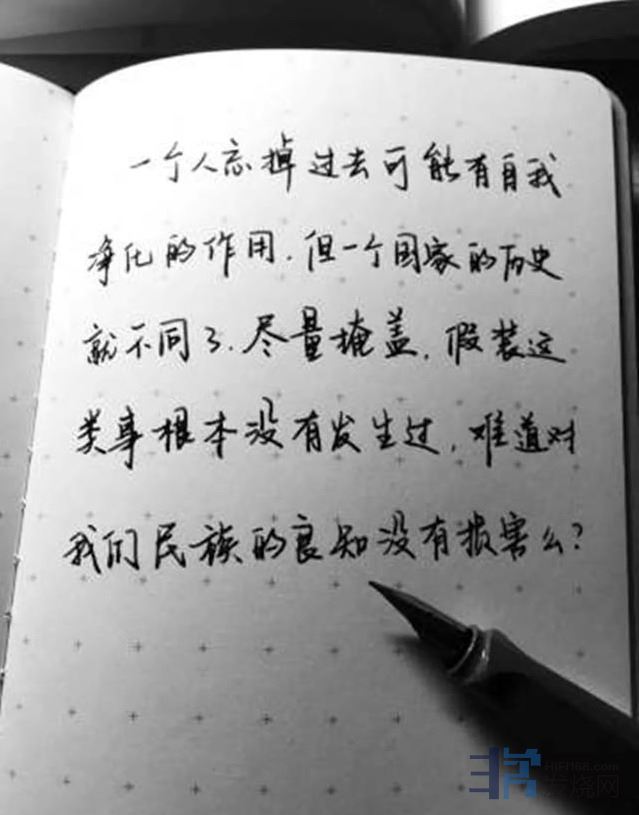 一个人忘掉过去可能有自我
净化的作用.但一个国家的历史
就不同了.尽量掩盖,假装这
类事根本没有发生过,难道对
我们民族的良知没有损害么?
HIFI168.com
发烧网